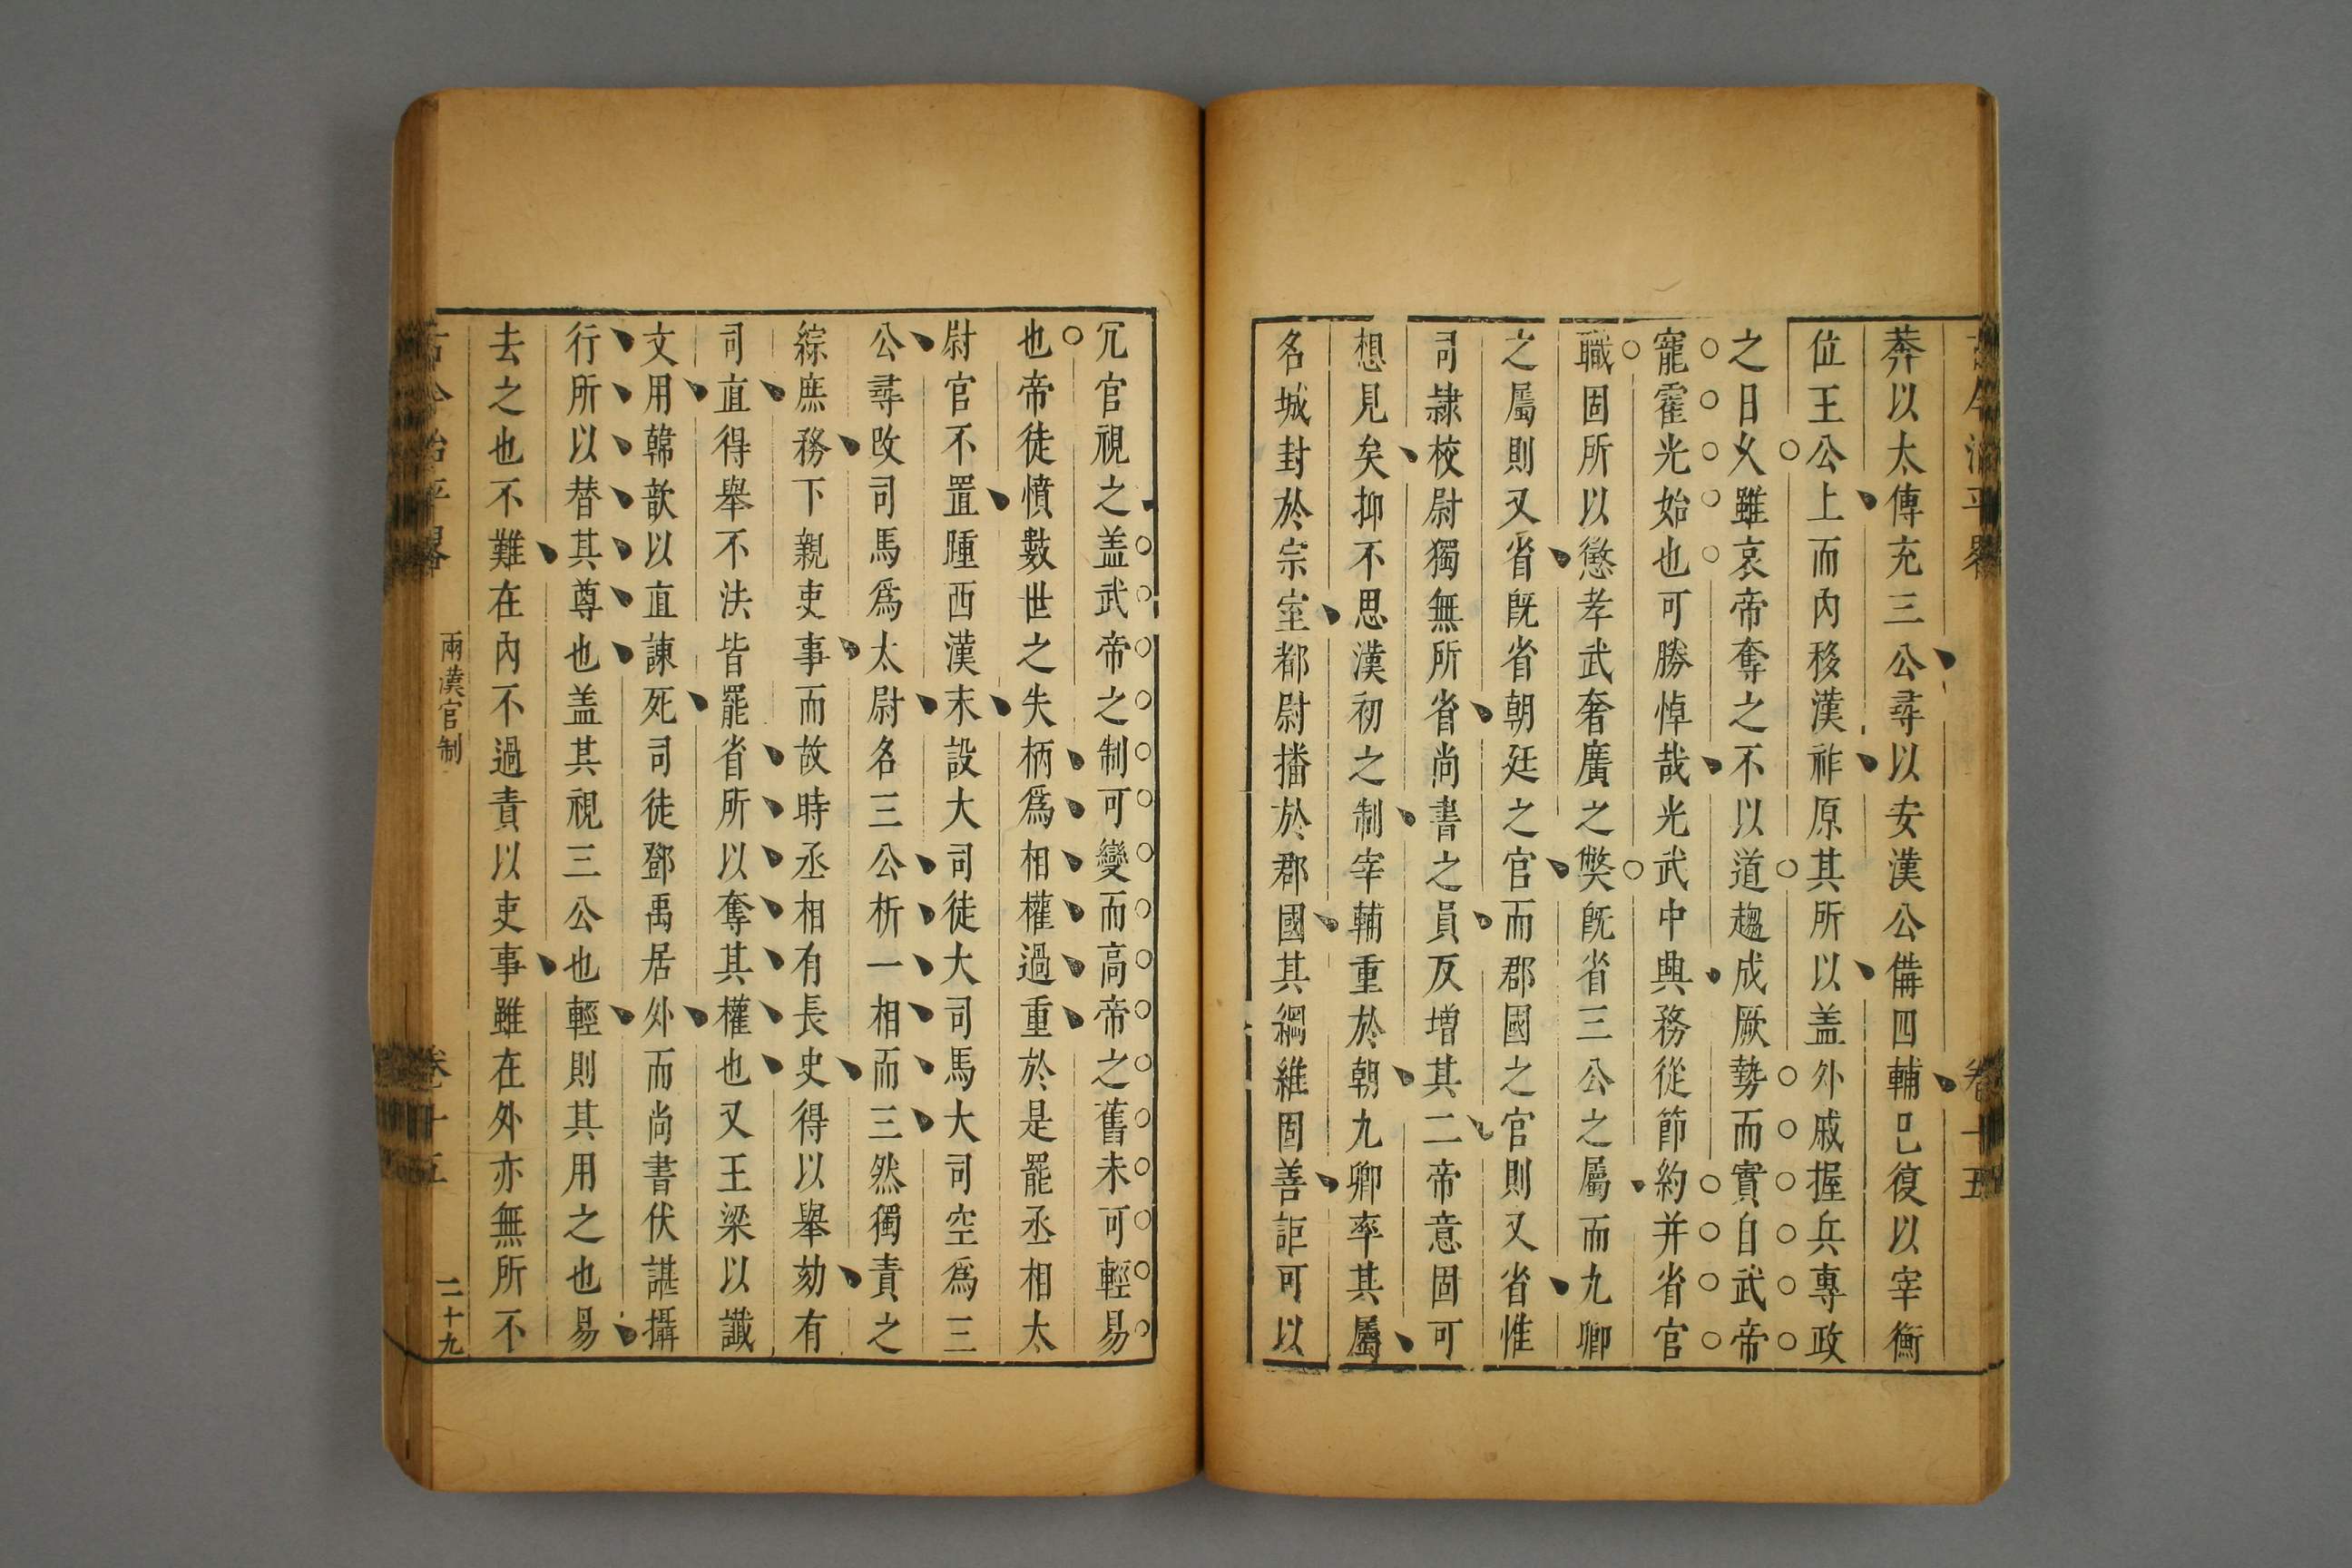 莽以太傅充三公尋以安漢公備四輔巳復以宰衡
位王公上而內移漢祚原其所以盖外戚握兵專政
之日乆雖哀帝奪之不以道趨成厥勢而實自武帝
寵霍光始也可勝悼哉光武中興務從節約并省官
職固所以懲孝武奢廣之獘旣省三公之屬而九卿
之屬則又省旣省朝廷之官而郡國之官則又省惟
司隷校尉獨無所省尚書之員反增其二帝意固可
想見矣抑不思漢初之制宰輔重於朝九卿率其屬
名城封於宗室都尉播於郡國其綱維固善詎可以
卷十五
冗官視之盖武帝之制可變而高帝之舊未可輕易
也帝徒憤數世之失柄爲相權過重於是罷丞相太
尉官不置踵西漢末設大司徒大司馬大司空爲三
公尋改司馬爲太尉名三公析一相而三然獨責之
綜庶務下親吏事而故時丞相有長史得以舉劾有
司直得舉不法皆罷省所以奪其權也又王梁以讖
文用韓歆以直諫死司徒鄧禹居外而尚書伏諶攝
行所以替其尊也盖其視三公也輕則其用之也易
去之也不難在內不過責以吏事雖在外亦無所不
古今治平畧
兩漢官制
卷十五
二十九